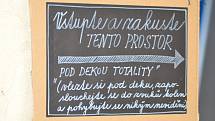 Vstupte a zakuste
TENTO PROSTOR
POD DEKOU TOTALITY*
*(vlezte si pod deku, zapo-
slouchejte se do zvuků kolem
a pohybujte se nikým neviděni)